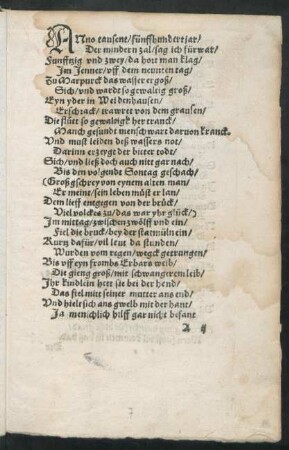 ANno tausent/ fünffhundert jar/
Der mindern zal/ sag ich fürwar/
Funfftzig vnd zwey/ da hort man klag/
Im Jenner/ vff dem neunten tag/
Zu Marpurck das wasser ergoß/
Sich/ vnd wardt so gewaltig groß/
Eyn yder in Weidenhausen/
Erschrack/ erawret von dem grausen/
Die fluet so gewaltigk her tranck/
Manch gesundt mensch wart daruon kranck.
Vnd must leiden deß wassers not/
Darinn erzeygt der bitter todt/
Sich/ vnd ließ doch auch nitt gar nach/
Biß den volgende Sontag geschach/
(Groß gschrey von eynem alten man/
Er meint/ sein leben müst er lan/
Dem lieff entgegen von der brück/
Viel volckes zu/ das war yhr glück/)
Im mittag/ zwischen zwölff vnd ein/
Fiel die bruck/ bey der stattmüln ein/
Kurtz dafür/ vil leut da stunden/
Wurden vom regen/ wegk getrungen/
Bis vff eyn fromhs Erbars weib/
Die gieng groß/ mit schwangerem leib/
Ihr kindlein hett sie bey der hend/
Das fiel mitt seiner mutter ans end/
Vnd hielt sich ans gwelb mit der hant/
Ja menschlich hilff gar nicht besant